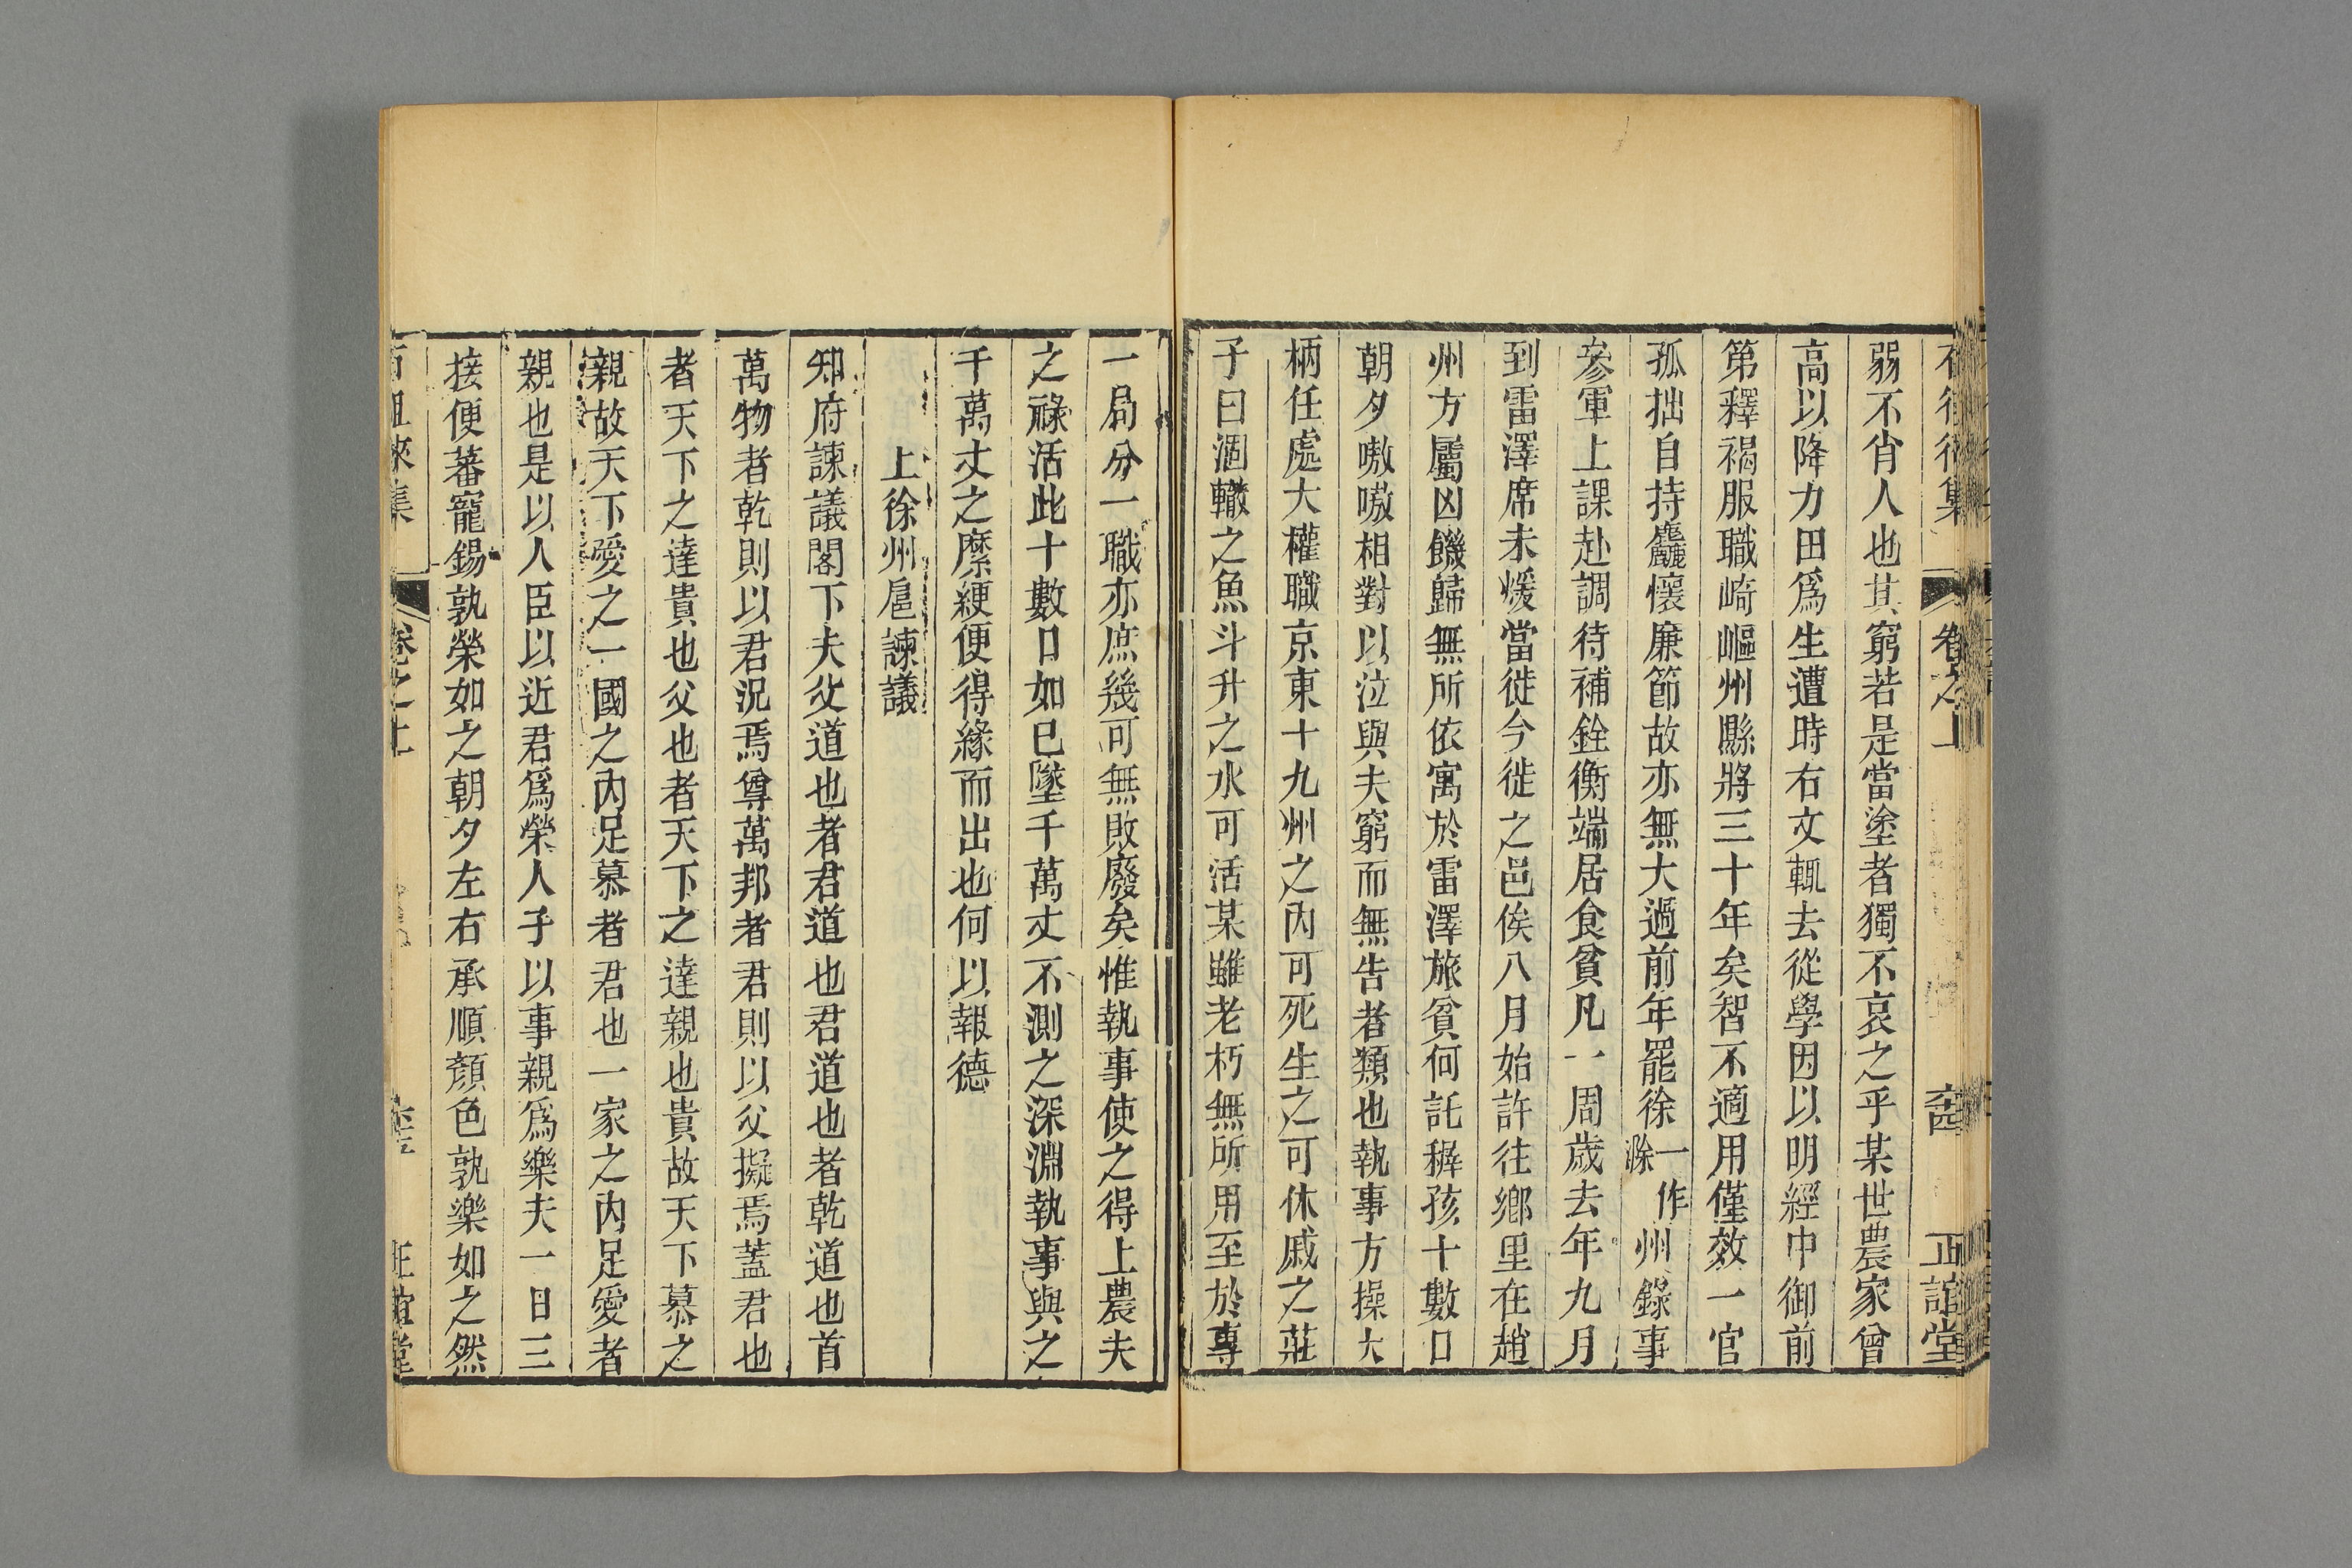 卷之上
正誼堂
弱不肖人也其窮若是當塗者獨不哀之乎某世農家曾
高以降力田爲生遭時右文輒去從學因以明經中御前
第釋褐服職崎嶇州縣將三十年矣智不適用僅效一官
孤拙自持麤懷廉節故亦無大過前年罷徐一作滁州錄事
參軍上課赴調待補銓衡端居食貧凡一周歲去年九月
到雷澤席未煖當徙今徙之邑俟八月始許往鄉里在趙
州方屬凶饑歸無所依寓於雷澤旅貧何託穉孩十數口
朝夕嗷嗷相對以泣與夫窮而無告者類也執事方操大
柄任處大權職京東十九州之內可死生之可休戚之莊
子曰涸轍之魚斗升之水可活某雖老朽無所用至於專
一局分一職亦庶幾可無敗廢矣惟執事使之得上農夫
之祿活此十數口如已墜千萬丈不測之深淵執事與之
千萬丈之縻綆便得緣而出也何以報德
上徐州扈諫議
知府諫議閣下夫父道也者君道也君道也者乾道也首
萬物者乾則以君況焉尊萬邦者君則以父擬焉蓋君也
者天下之達貴也父也者天下之達親也貴故天下慕之
親故天下愛之一國之內足慕者君也一家之內足愛者
親也是以人臣以近君爲榮人子以事親爲樂夫一日三
接便蕃寵錫孰榮如之朝夕左右承順顏色孰樂如之然
徂徠集
卷之上
正誼堂